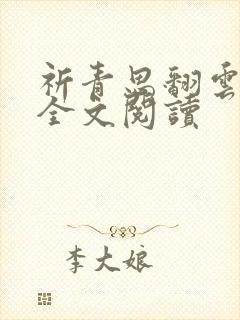 祈青思翻雲
全文閱讀
李大娘